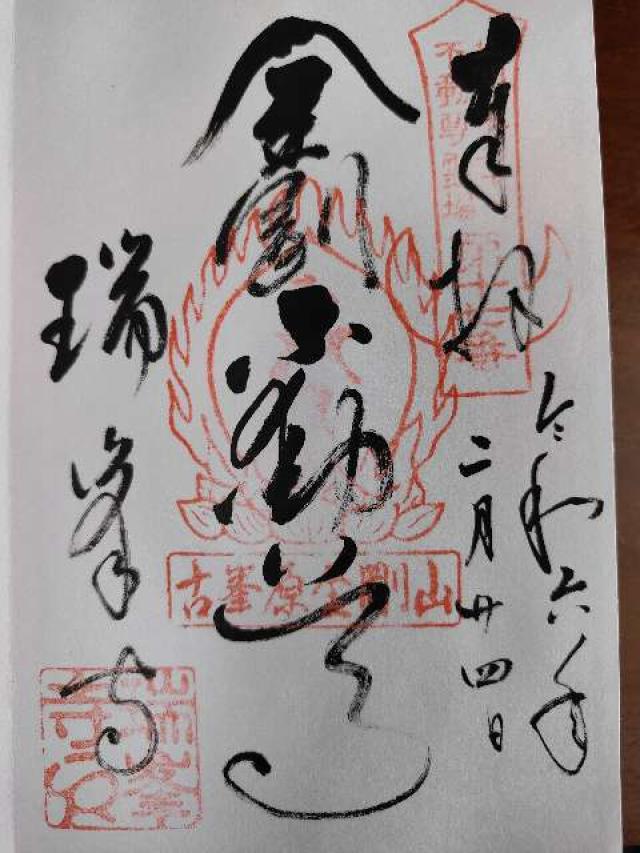 奉拝
不動尊霊場
令和六年
二月廿四日
金剛不動尊
古峯原金剛山
瑞峯寺